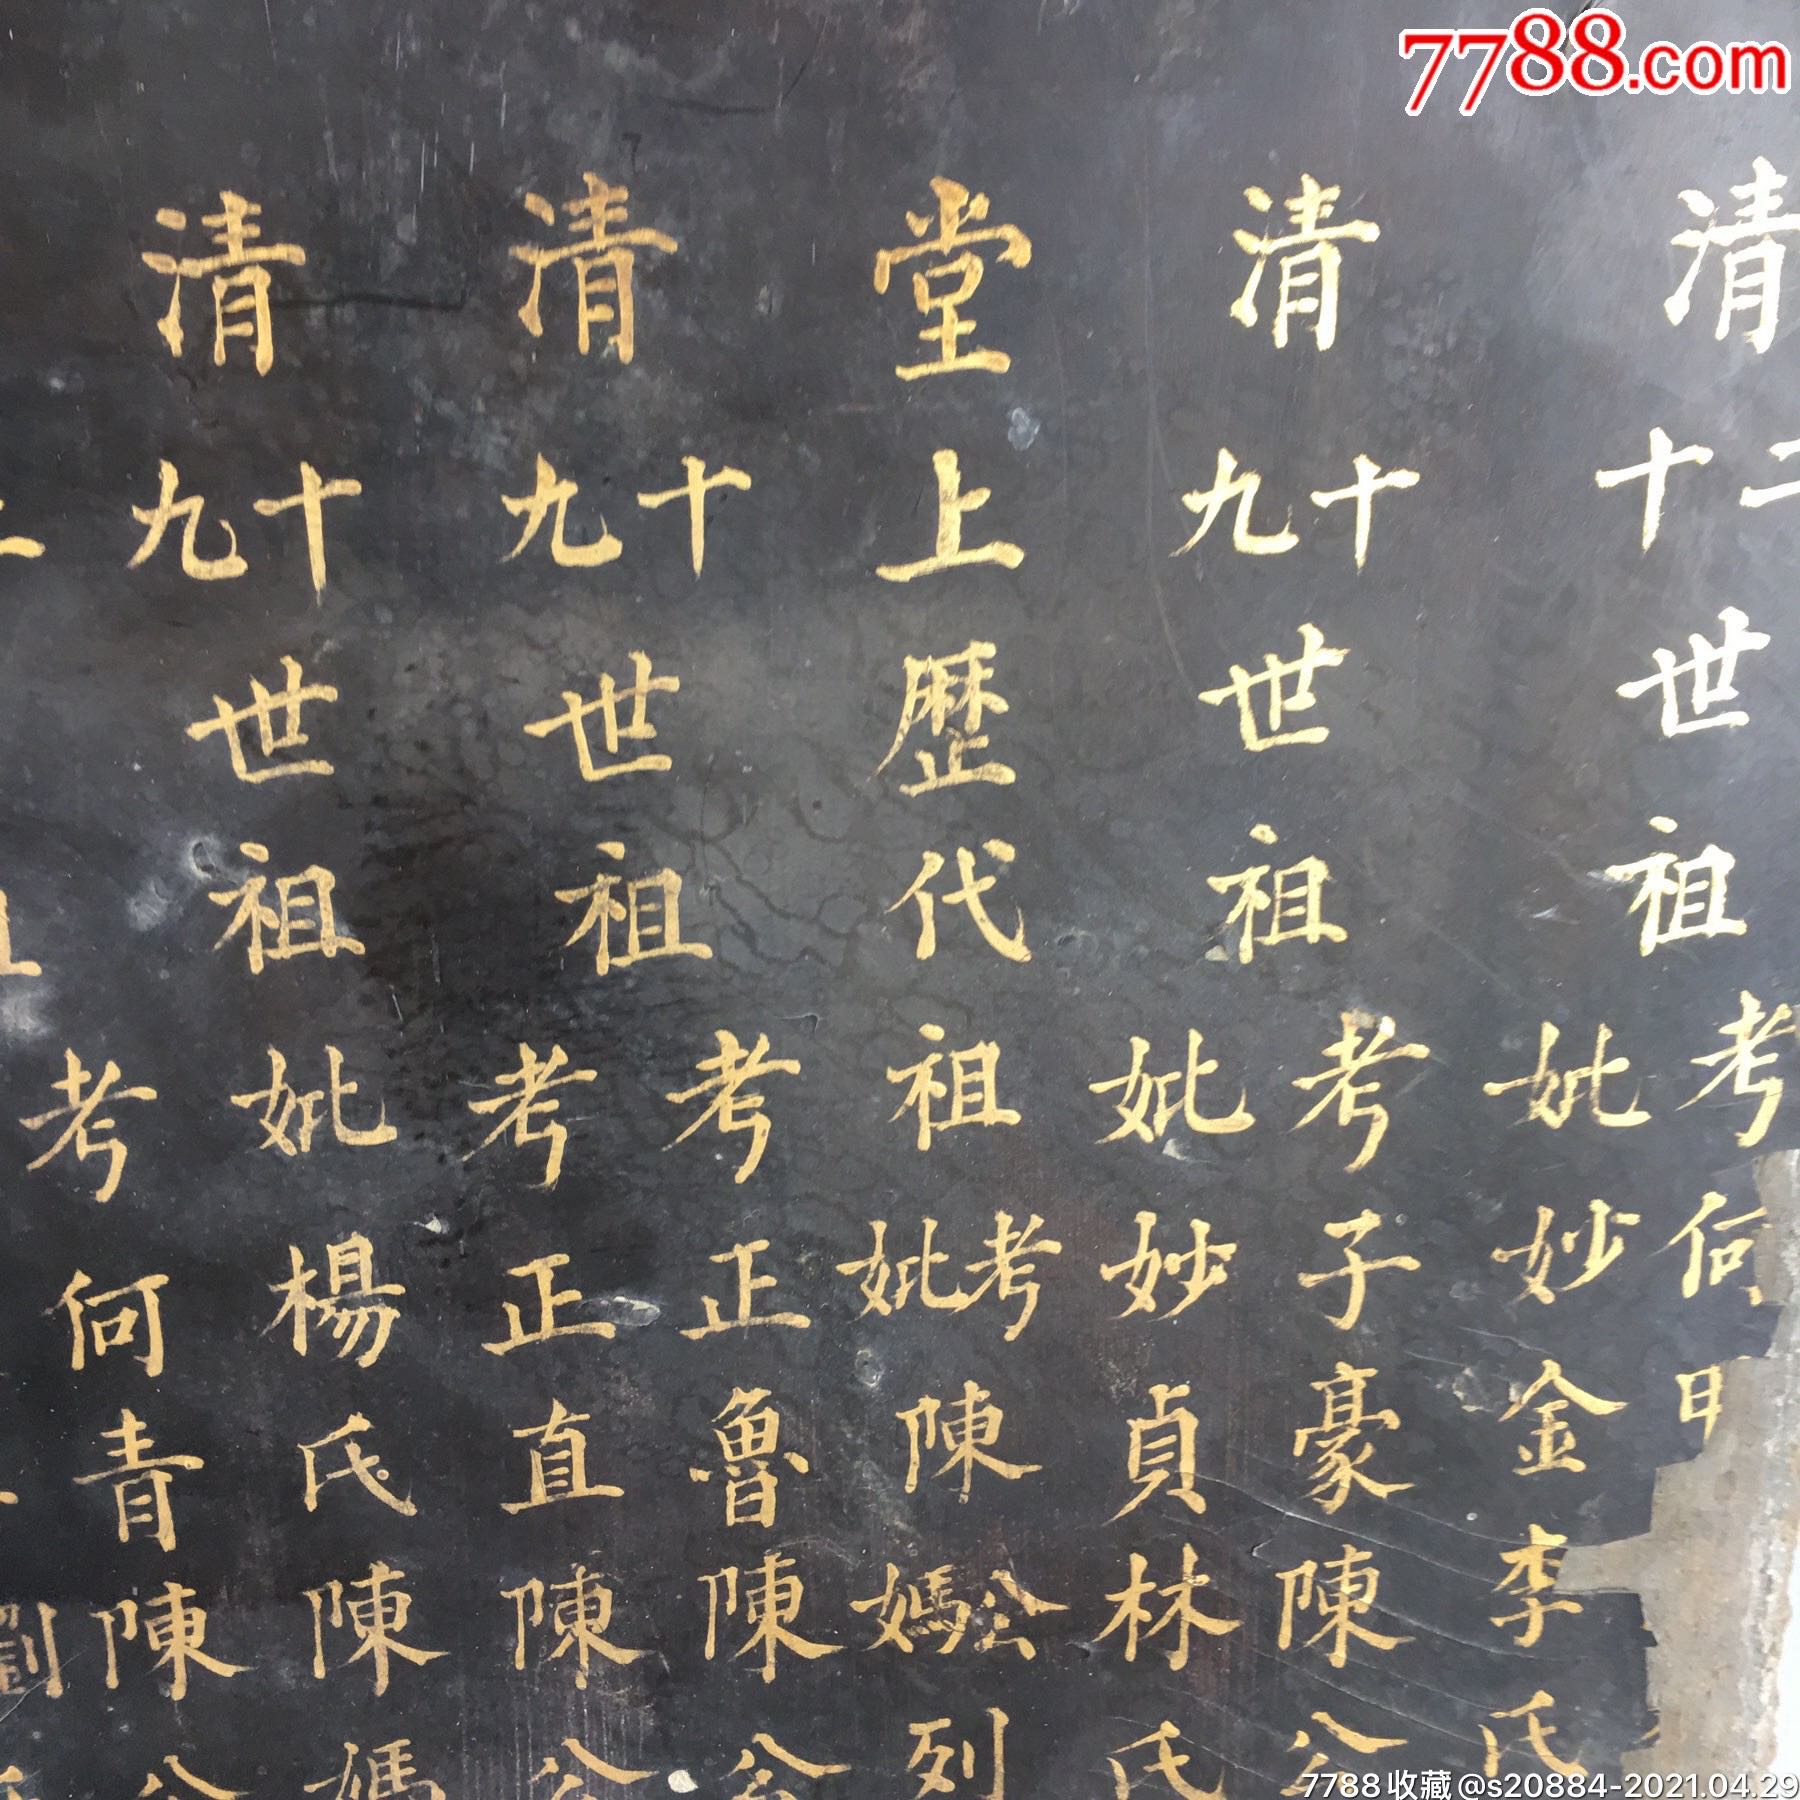 7788.com
清二十世祖
考何
妣妙金李氏
清十九世祖
考子豪陳公
妣妙貞林氏
堂上歴代祖考妣陳公媽列
清十九世祖
考正魯陳公
考正直陳公
清十九世祖
妣楊氏陳媽
考何青陳公
7788收藏@s20884-2021.04.29